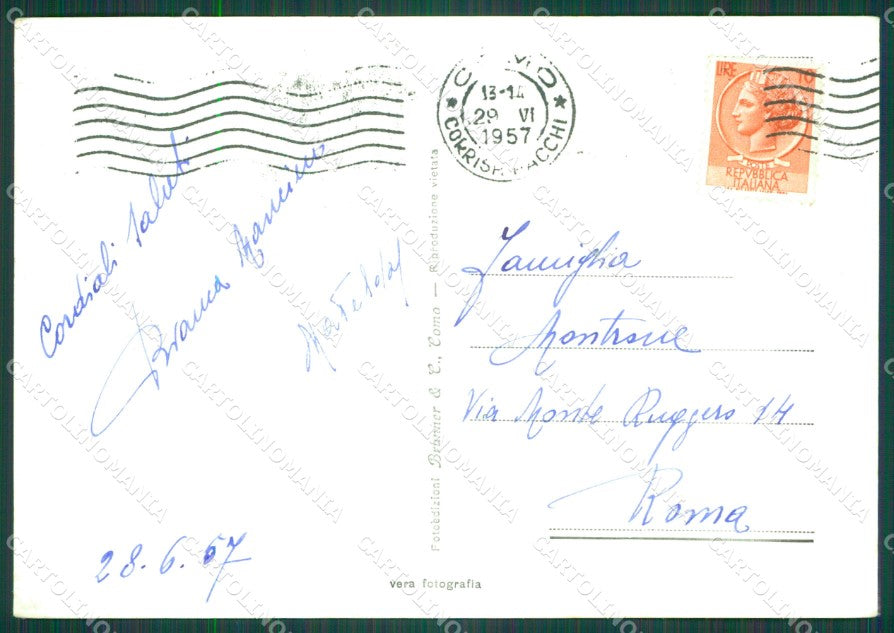 COMO
13-14
29 VI
1957
CORRISP. PACCHI
LIRE 10
REPVBBLICA
ITALIANA
Cordiali saluti
28.6.57
Fotoedizioni Brunner & C., Como — Riproduzione vietata
vera fotografia
Famiglia
Via Monte Ruggero 14
Roma
CARTOLINOMANIA